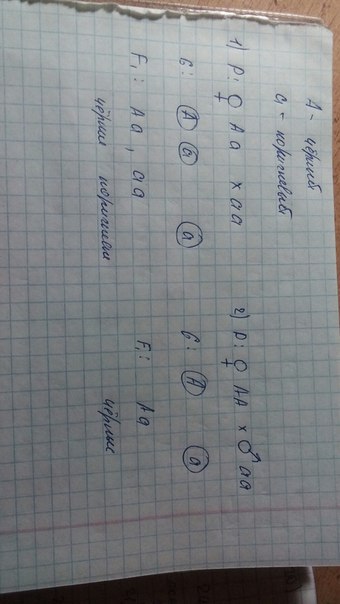 A - чёрный
a - коричневый
1) P: ♀ Aa x aa
G: A a a
F₁: Aa, aa
чёрные коричневые
2) P: ♀ AA x ♂ aa
G: A a
F₁: Aa
чёрные